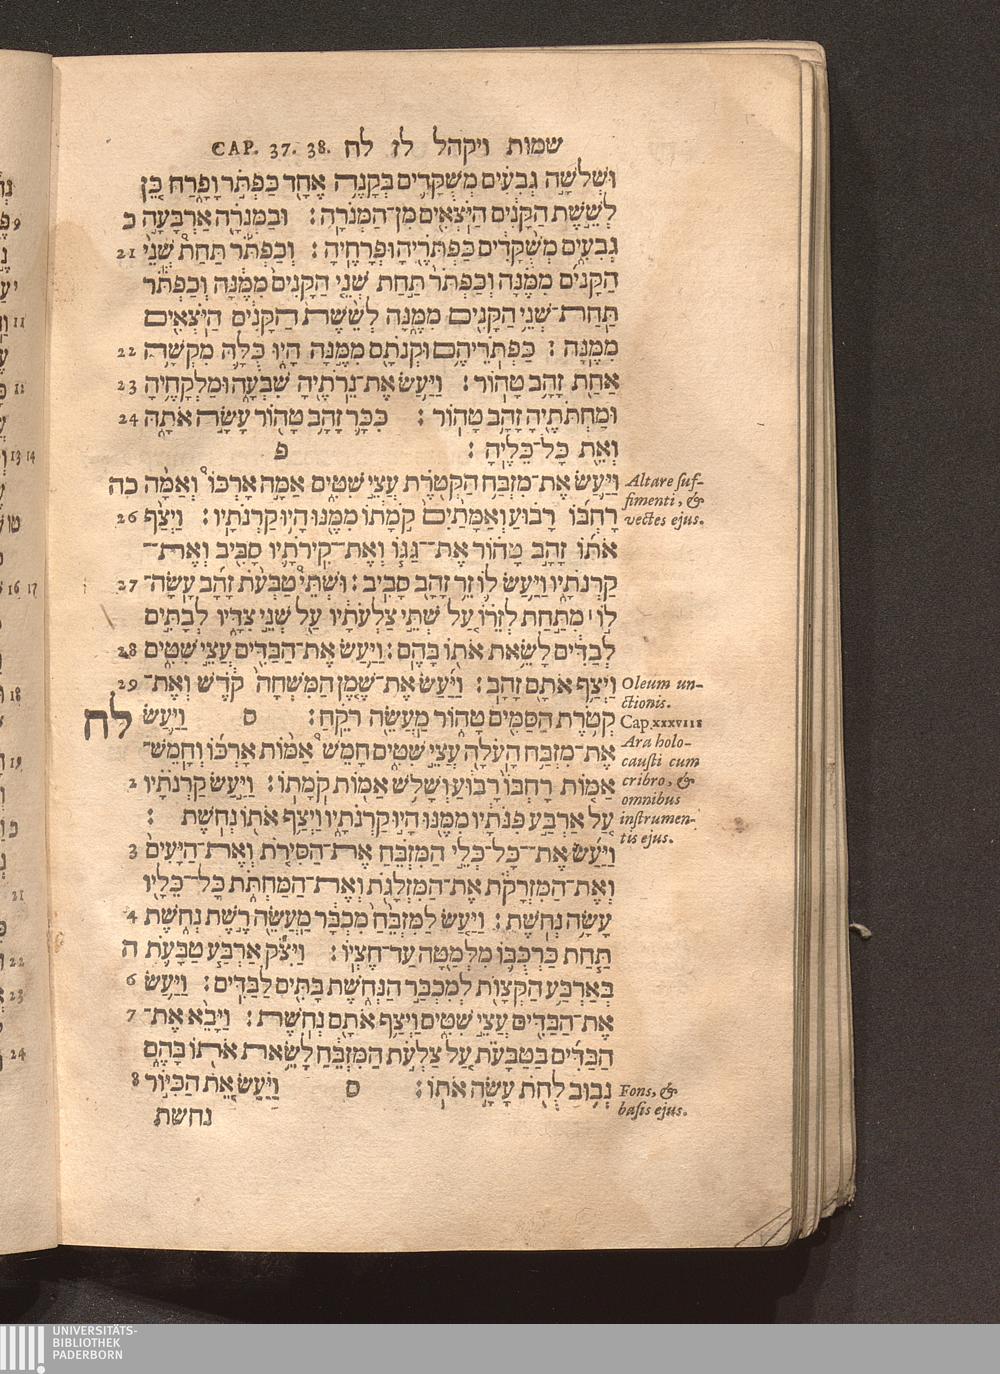 שמות ויקהל לז לח CAP. 37. 38.
וּשְׁלֹשָׁ֣ה גְבִעִ֗ים מְשֻׁקָּדִ֛ים בְּקָנֶ֥ה אֶחָ֖ד כַּפְתֹּ֣ר וָפָ֑רַח כֵּ֚ן
לְשֵׁ֣שֶׁת הַקָּנִ֔ים הַיֹּצְאִ֖ים מִן־הַמְּנֹרָֽה׃ וּבַמְּנֹרָ֖ה אַרְבָּעָ֣ה כ
גְבִעִ֑ים מְשֻׁ֨קָּדִ֔ים כַּפְתֹּרֶ֖יהָ וּפְרָחֶֽיהָ׃ וְכַפְתֹּ֡ר תַּחַת֩ שְׁנֵ֨י 21
הַקָּנִ֜ים מִמֶּ֗נָּה וְכַפְתֹּר֙ תַּ֣חַת שְׁנֵ֤י הַקָּנִים֙ מִמֶּ֔נָּה וְכַפְתֹּ֕ר
תַּֽחַת־שְׁנֵ֥י הַקָּנִ֖ים מִמֶּ֑נָּה לְשֵׁ֙שֶׁת֙ הַקָּנִ֔ים הַיֹּצְאִ֖ים
מִמֶּֽנָּה׃ כַּפְתֹּרֵיהֶ֥ם וּקְנֹתָ֖ם מִמֶּ֣נָּה הָי֑וּ כֻּלָּ֛הּ מִקְשָׁ֥ה 22
אַחַ֖ת זָהָ֥ב טָהֽוֹר׃ וַיַּ֥עַשׂ אֶת־נֵרֹתֶ֖יהָ שִׁבְעָ֑ה וּמַלְקָחֶ֥יהָ 23
וּמַחְתֹּתֶ֖יהָ זָהָ֥ב טָהֽוֹר׃ כִּכָּ֛ר זָהָ֥ב טָה֖וֹר עָשָׂ֣ה אֹתָ֑הּ 24
וְאֵ֖ת כָּל־כֵּלֶֽיהָ׃ פ
וַיַּ֛עַשׂ אֶת־מִזְבַּ֥ח הַקְּטֹ֖רֶת עֲצֵ֣י שִׁטִּ֑ים אַמָּ֣ה אָרְכּוֹ֩ וְאַמָּ֨ה כה
רָחְבּ֜וֹ רָב֗וּעַ וְאַמָּתַ֙יִם֙ קֹֽמָת֔וֹ מִמֶּ֖נּוּ הָי֥וּ קַרְנֹתָֽיו׃ וַיְצַ֨ף 26
אֹת֜וֹ זָהָ֣ב טָה֗וֹר אֶת־גַּגּ֧וֹ וְאֶת־קִירֹתָ֛יו סָבִ֖יב וְאֶת־
קַרְנֹתָ֑יו וַיַּ֥עַשׂ ל֛וֹ זֵ֥ר זָהָ֖ב סָבִֽיב׃ וּשְׁתֵּי֩ טַבְּעֹ֨ת זָהָ֜ב עָֽשָׂה־ 27
ל֣וֹ׀ מִתַּ֣חַת לְזֵר֗וֹ עַ֚ל שְׁתֵּ֣י צַלְעֹתָ֔יו עַ֖ל שְׁנֵ֣י צִדָּ֑יו לְבָתִּ֣ים
לְבַדִּ֔ים לָשֵׂ֥את אֹת֖וֹ בָּהֶֽם׃ וַיַּ֥עַשׂ אֶת־הַבַּדִּ֖ים עֲצֵ֣י שִׁטִּ֑ים 28
וַיְצַ֥ף אֹתָ֖ם זָהָֽב׃ וַיַּ֜עַשׂ אֶת־שֶׁ֤מֶן הַמִּשְׁחָה֙ קֹ֔דֶשׁ וְאֶת־ 29
קְטֹ֥רֶת הַסַּמִּ֖ים טָה֑וֹר מַעֲשֵׂ֖ה רֹקֵֽחַ׃ ס וַיַּ֛עַשׂ לח
אֶת־מִזְבַּ֥ח הָעֹלָ֖ה עֲצֵ֣י שִׁטִּ֑ים חָמֵשׁ֩ אַמּ֨וֹת אָרְכּ֜וֹ וְחָֽמֵשׁ־
אַמּ֤וֹת רָחְבּוֹ֙ רָב֔וּעַ וְשָׁלֹ֥שׁ אַמּ֖וֹת קֹמָתֽוֹ׃ וַיַּ֣עַשׂ קַרְנֹתָ֗יו 2
עַ֚ל אַרְבַּ֣ע פִּנֹּתָ֔יו מִמֶּ֖נּוּ הָי֣וּ קַרְנֹתָ֑יו וַיְצַ֥ף אֹת֖וֹ נְחֹֽשֶׁת׃
וַיַּ֜עַשׂ אֶֽת־כָּל־כְּלֵ֣י הַמִּזְבֵּ֗חַ אֶת־הַסִּירֹ֤ת וְאֶת־הַיָּעִים֙ 3
וְאֶת־הַמִּזְרָקֹ֔ת אֶת־הַמִּזְלָגֹ֖ת וְאֶת־הַמַּחְתֹּ֑ת כָּל־כֵּלָ֖יו
עָשָׂ֥ה נְחֹֽשֶׁת׃ וַיַּ֤עַשׂ לַמִּזְבֵּ֙חַ֙ מִכְבָּ֔ר מַעֲשֵׂ֖ה רֶ֣שֶׁת נְחֹ֑שֶׁת 4
תַּ֧חַת כַּרְכֻּבּ֛וֹ מִלְּמַ֖טָּה עַד־חֶצְיֽוֹ׃ וַיִּצֹ֞ק אַרְבַּ֧ע טַבָּעֹ֛ת ה
בְּאַרְבַּ֥ע הַקְּצָוֹ֖ת לְמִכְבַּ֣ר הַנְּחֹ֑שֶׁת בָּתִּ֖ים לַבַּדִּֽים׃ וַיַּ֥עַשׂ 6
אֶת־הַבַּדִּ֖ים עֲצֵ֣י שִׁטִּ֑ים וַיְצַ֥ף אֹתָ֖ם נְחֹֽשֶׁת׃ וַיָּבֵ֨א אֶת־ 7
הַבַּדִּ֜ים בַּטַּבָּעֹ֗ת עַ֚ל צַלְעֹ֣ת הַמִּזְבֵּ֔חַ לָשֵׂ֥את אֹת֖וֹ בָּהֶ֑ם
נְב֥וּב לֻחֹ֖ת עָשָׂ֥ה אֹתֽוֹ׃ ס וַיַּ֗עַשׂ אֵ֚ת הַכִּיּ֣וֹר 8
נחשת
Altare suf-
fimenti, &
vectes ejus.
Oleum un-
ctionis.
Cap. xxxviii
Ara holo-
causti cum
cribro, &
omnibus
instrumen-
tis ejus.
Fons, &
basis ejus.
9
11
12
13 14
16 17
18
19
21
22
23
24
UNIVERSITÄTS-
BIBLIOTHEK
PADERBORN